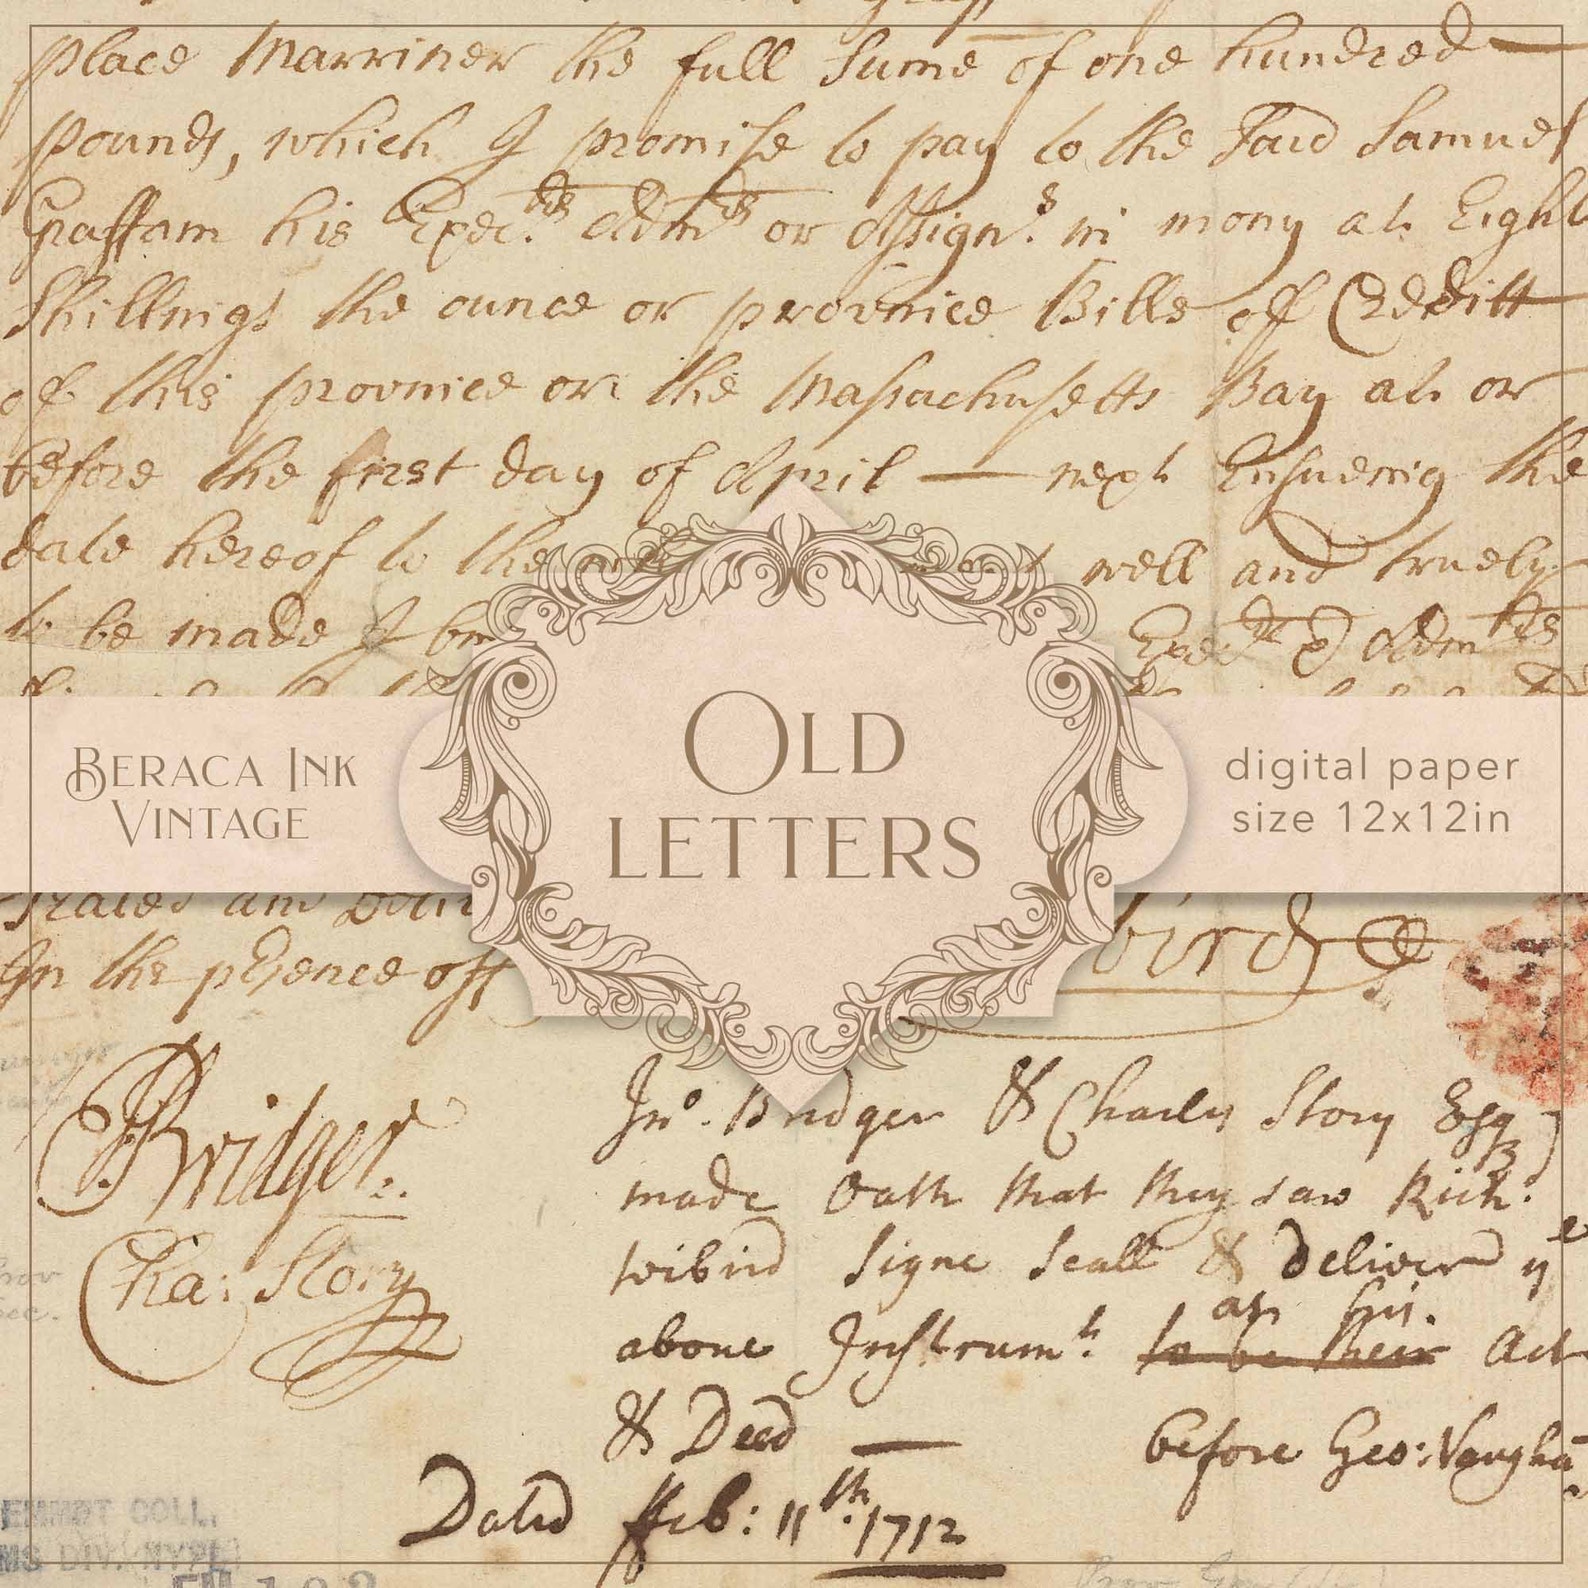 place Marriner the full Sume of one hundred
pounds, which I promise to pay to the Said Samuel
his Exec.rs Adm.rs or Assign.s in mony at Eight
Shillings the ounce or province Bills of Creditt
of this province or the Massachusetts Bay at or
before the first day of April — next Ensueing the
date hereof to the well and truely
to be made I Exec.rs & Adm.rs
BERACA INK
VINTAGE
OLD
LETTERS
digital paper
size 12x12in
bird
In the presence off
Bridger.
Cha: Story
Jno. Bridger & Charles Story Esq
made Oath that they saw Rich.
wibird Signe Seall & Deliver ye
above Instrum.t to be their as his. Act
& Deed —
before Geo: Vaugha
Dated ffeb: 11th. 1712
EMMET COLL.
MS DIV. NYPL